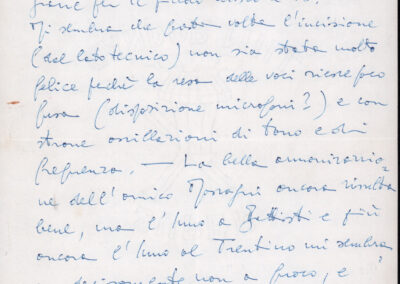 Mi sembra che questa volta l'incisione
(dal lato tecnico) non sia stata molto
felice perchè la resa delle voci riesce poco
fusa (disposizione microfoni?) e con
strane oscillazioni di tono e di
frequenza. — La bella armonizzazio-
ne dell'amico Mascagni ancora risulta
bene, ma l'Inno a Battisti e più
ancora l'Inno al Trentino mi sembra
decisamente non a fuoco, e